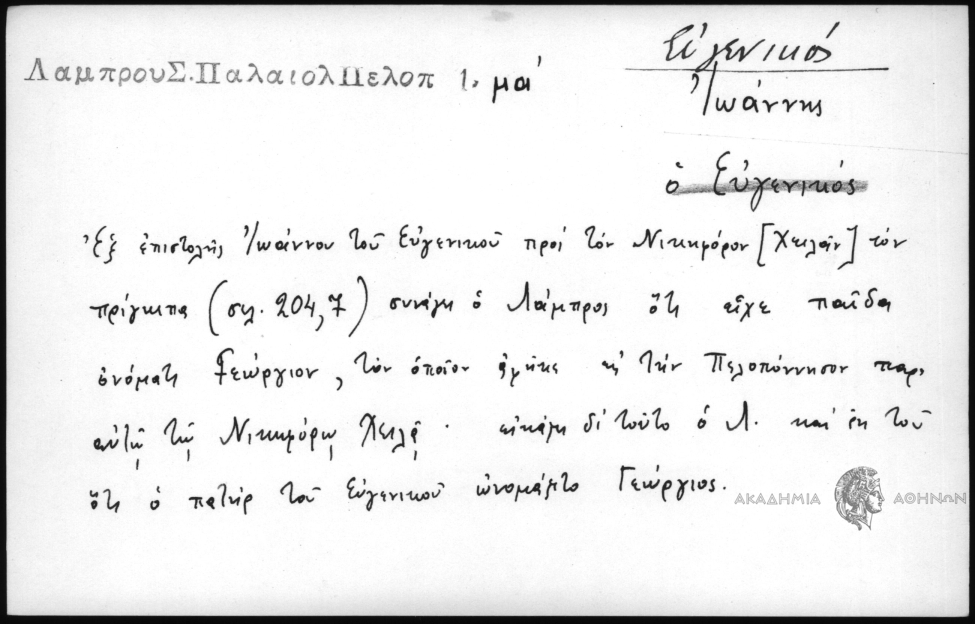 Εὐγενικός
ΛαμπρουΣ.ΠαλαιολΠελοπ 1. μα'
Ἰωάννης
ὁ Εὐγενικός
Ἐξ ἐπιστολῆς Ἰωάννου τοῦ Εὐγενικοῦ πρὸς τὸν Νικηφόρον [Χειλᾶν] τὸν
πρίγκιπα (σελ. 204,7) συνάγει ὁ Λάμπρος ὅτι εἶχε παῖδα
ὀνόματι Γεώργιον, τὸν ὁποῖον ἀφῆκε εἰς τὴν Πελοπόννησον παρ'
αὐτῷ τῷ Νικηφόρῳ Χειλᾷ. εἰκάζει διὰ τοῦτο ὁ Λ. καὶ ἐκ τοῦ
ὅτι ὁ πατὴρ τοῦ Εὐγενικοῦ ὠνομάζετο Γεώργιος.
ΑΚΑΔΗΜΙΑ ΑΘΗΝΩΝ